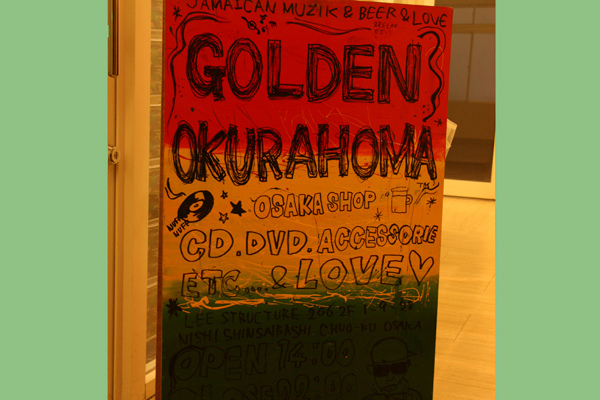 JAMAICAN MUZIK & BEER & LOVE
GOLDEN
OKURAHOMA
OSAKA SHOP
CD.DVD.ACCESSORIE
ETC.....& LOVE♡
LEE STRUCTURE 206 2F
NISHI SHINSAIBASHI CHUO-KU OSAKA
OPEN 14:00